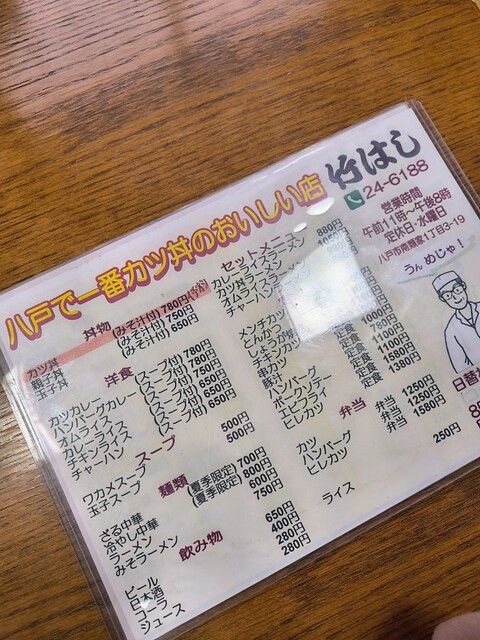 八戸で一番カツ丼のおいしい店
竹はし
24-6188
営業時間
午前11時〜午後8時
定休日・水曜日
八戸市南類家1丁目3-19
うんめじゃ!
丼物
カツ丼 (みそ汁付) 780円
親子丼 (みそ汁付) 750円
玉子丼 (みそ汁付) 650円
洋食
カツカレー (スープ付) 780円
ハンバーグカレー (スープ付) 780円
オムライス (スープ付) 750円
カレーライス (スープ付) 650円
チキンライス (スープ付) 650円
チャーハン (スープ付) 650円
スープ
ワカメスープ 500円
玉子スープ 500円
麺類
ざる中華 (夏季限定) 700円
冷やし中華 (夏季限定) 800円
ラーメン 600円
みそラーメン 750円
飲み物
ビール 650円
日本酒 400円
コーラ 280円
ジュース 280円
セットメニュー
カレーライスラーメン 880円
カツカレーラーメン
オムライスラーメン
チャーハンラーメン
メンチカツ
とんかつ
しょうが焼
チキンカツ 定食
豚汁 定食 780円
ハンバーグ 定食 1000円
ポークソテー 定食 1100円
エビフライ 定食 1580円
ヒレカツ 定食 1380円
弁当
カツ 弁当 1250円
ハンバーグ 弁当 1250円
ヒレカツ 弁当 1580円
ライス 250円
日替